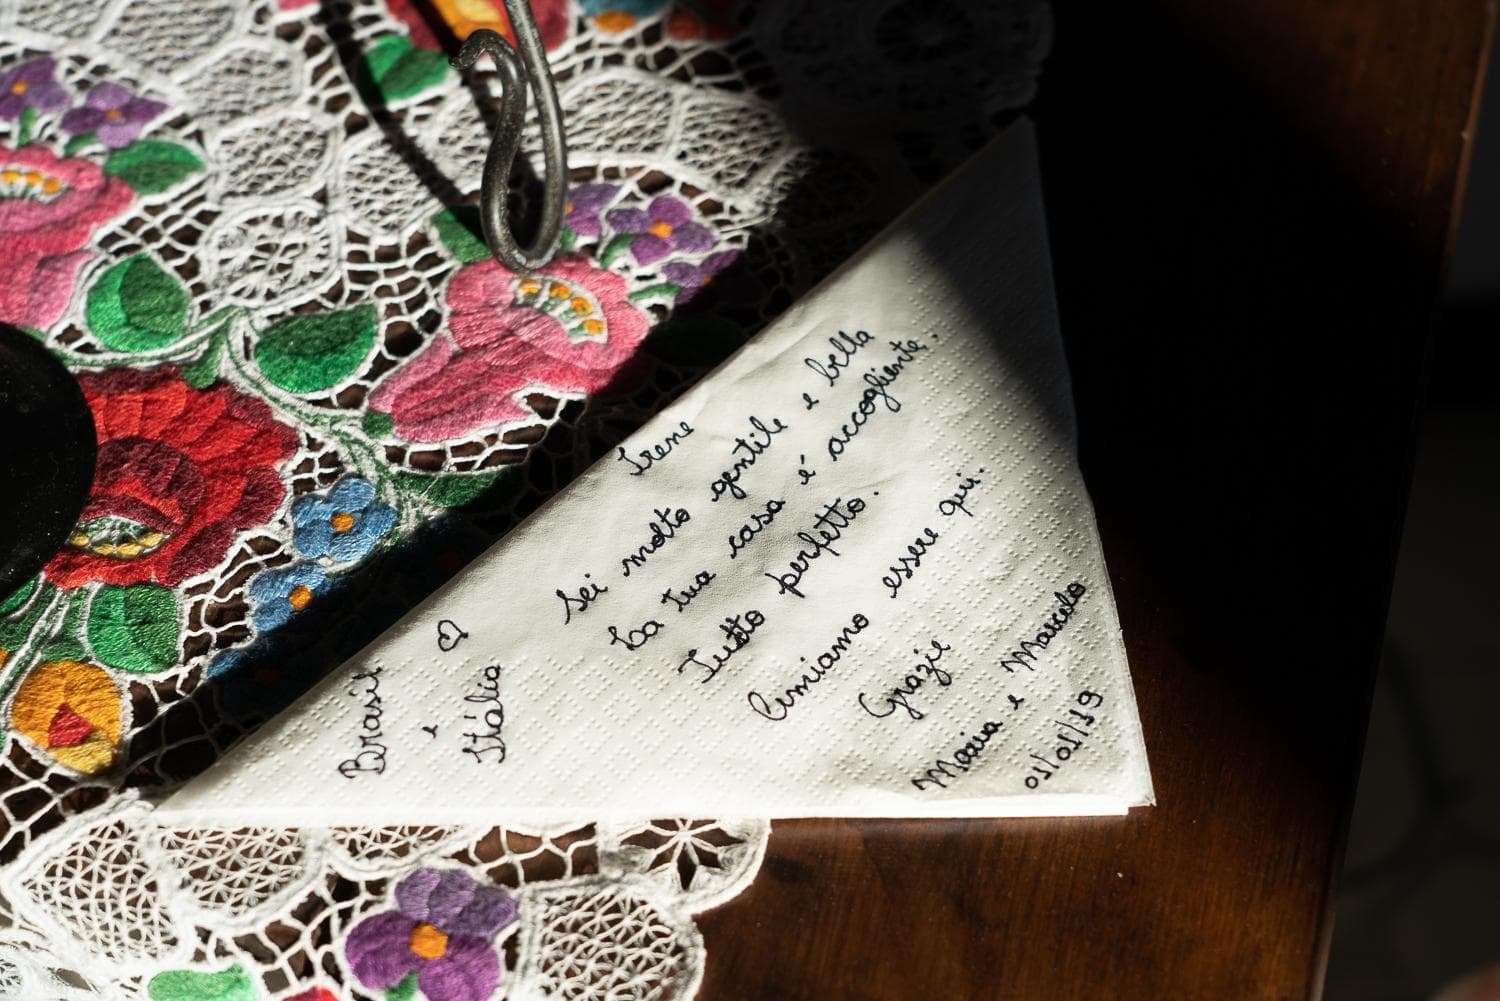 Irene
Sei molto gentile e bella
La tua casa é accogliente.
Tutto perfetto.
Amiamo essere qui.
Grazie
Maria e Marcelo
01/01/19
Brasil
e
Itália